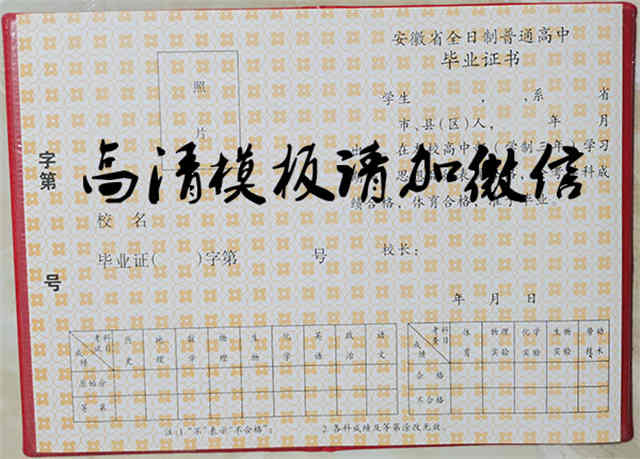 安徽省全日制普通高中
毕业证书
照
片
学生 , ,系 省
市、县(区)人, 年 月
在 校高中 (学制三年)学习
思想 表
科成
绩合格,体育合格,准予毕业。
高清模板请加微信
字第
号
校 名
毕业证( )字第 号
校长:
年 月 日
科目 考试 成绩 历史 地理 数学 物理 生物 化学 英语 政治 语文
原始分
等第
科目 考查 成绩 体育 物理实验 化学实验 生物实验 劳动技术
合格
不合格
注:1.“不”表示“不合格”; 2.各科成绩及等第涂改无效。